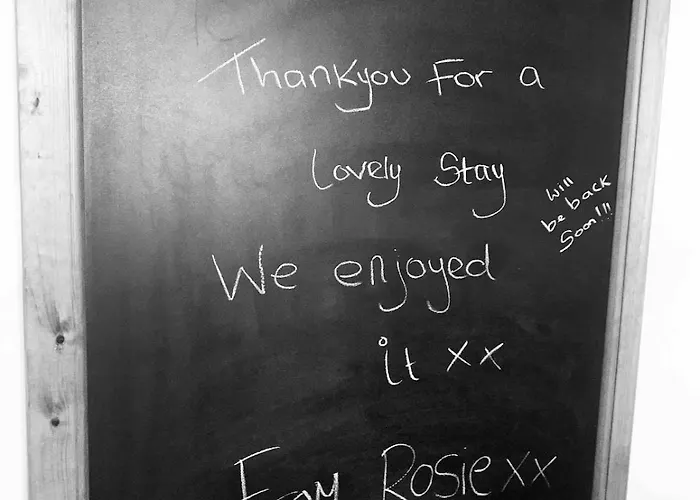 Thankyou For a
Lovely Stay
will
be back
Soon!!!
We enjoyed
it xx
Fay Rosie xx